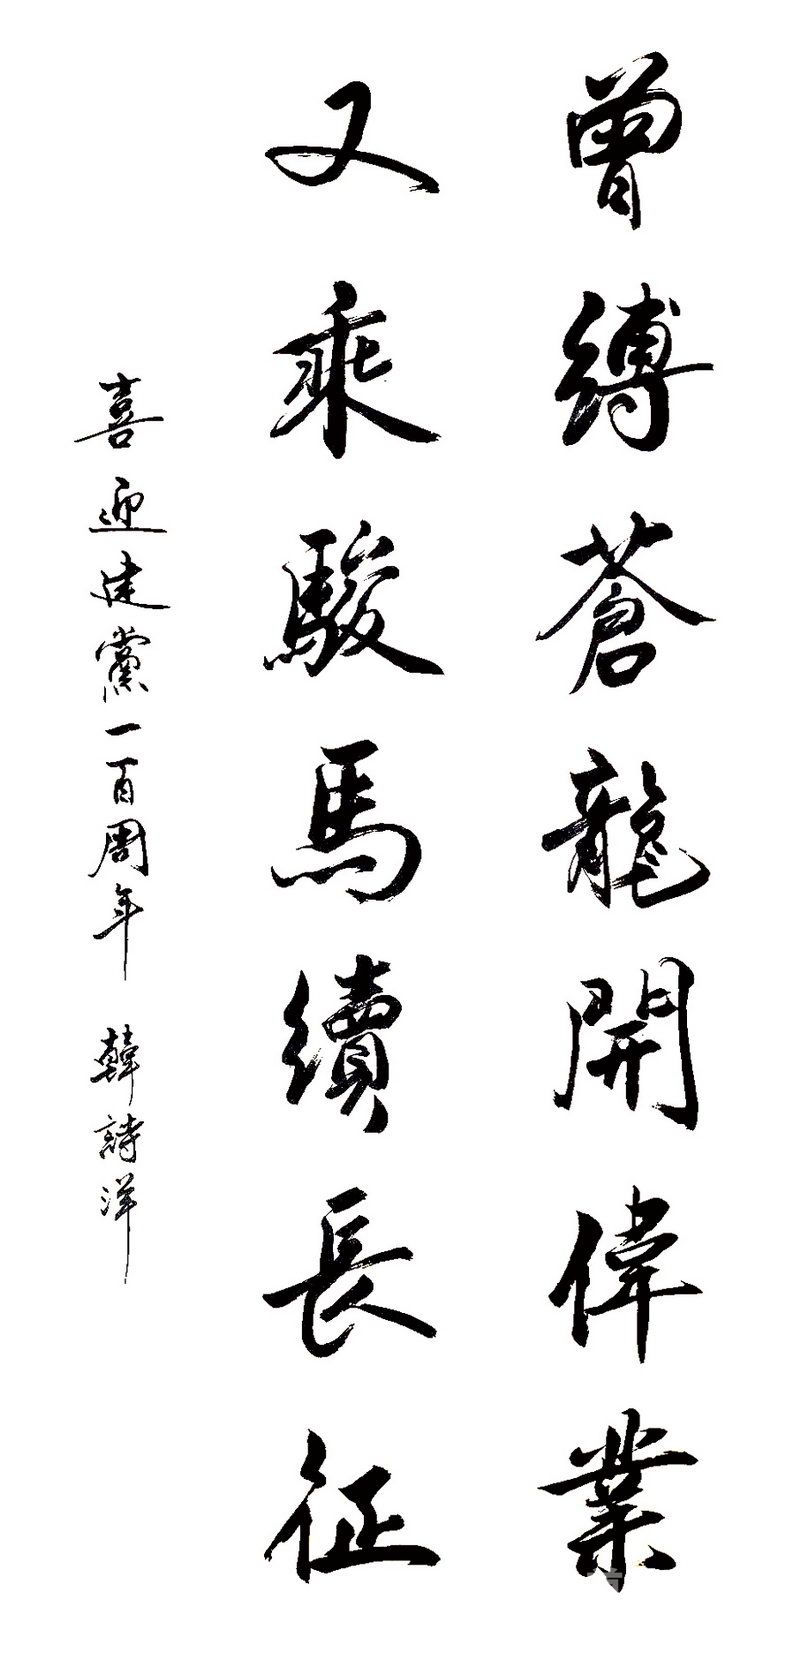 曾縛蒼龍開偉業
又乘駿馬續長征
喜迎建黨一百周年 韓詩洋